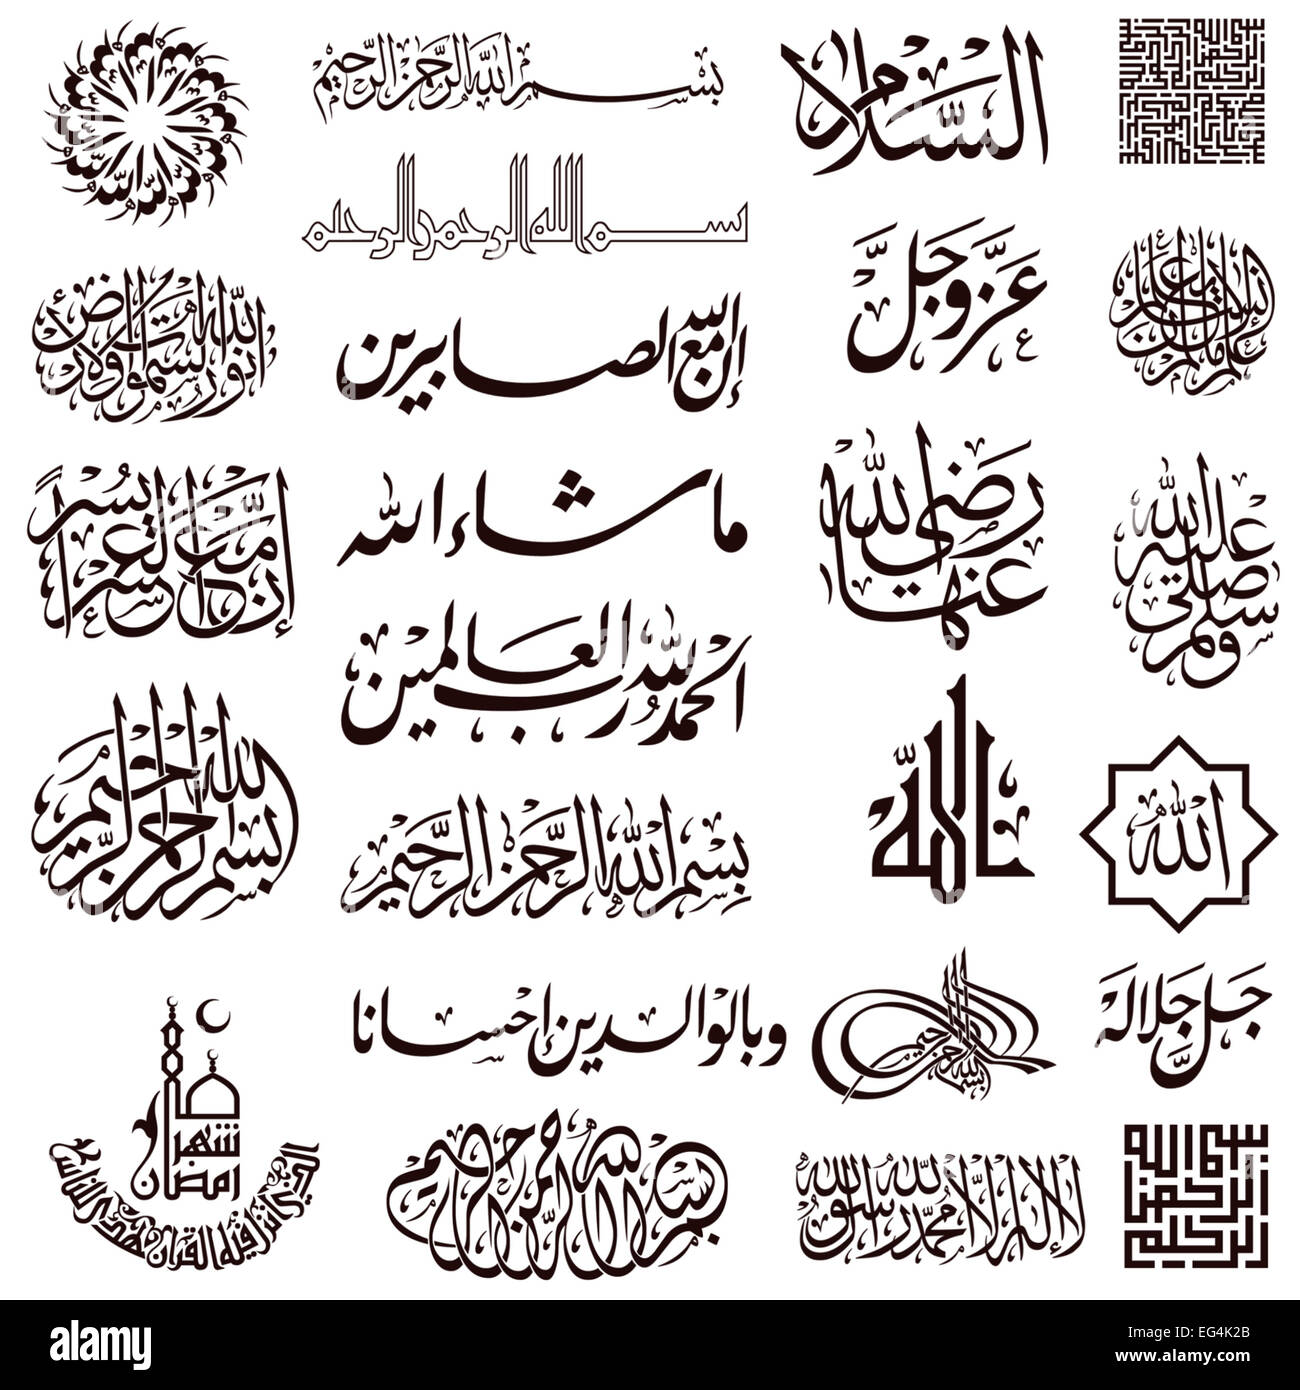 بسم الله الرحمن الرحيم
السلام
بسم الله الرحمن الرحيم
عز وجل
علم الإنسان ما لم يعلم
الله نور السموات والأرض
إن الله مع الصابرين
رضي الله عنها
صلى الله عليه وسلم
إن مع العسر يسرا
ما شاء الله
الحمد لله رب العالمين
الله
الله
بسم الله الرحمن الرحيم
بسم الله الرحمن الرحيم
وبالوالدين إحسانا
بسم الله الرحمن الرحيم
جل جلاله
شهر رمضان
الذي أنزل فيه القرآن هدى للناس
بسم الله الرحمن الرحيم
لا إله إلا الله محمد رسول الله
بسم الله الرحمن الرحيم
alamy stock photo
EG4K2B
www.alamy.com